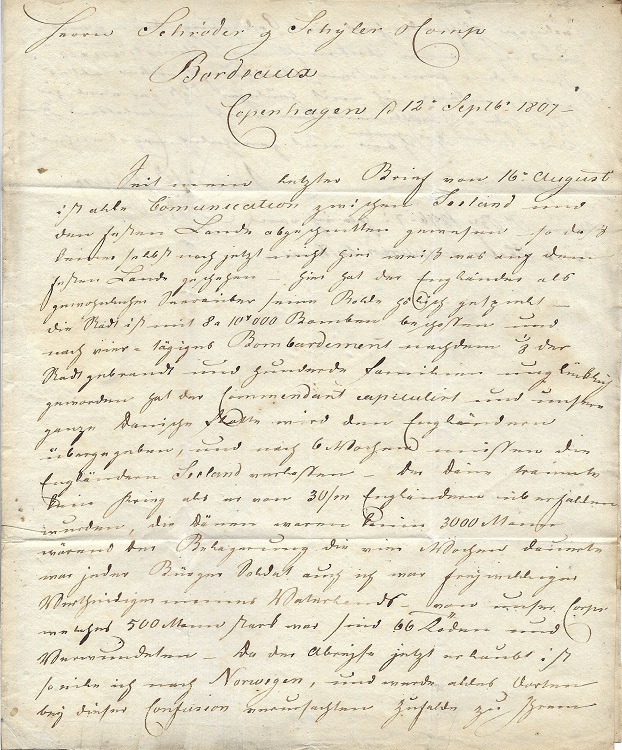 Herrn Schröder & Schÿler & Comp
Bordeaux
Copenhagen d 12t Septb. 1807
Seit mein letzter Brief von 16t August
ist alle Comunication zwischen Seeland und
den festen Lande abgeschnitten gewesen so daß
keiner selbst noch jetzt nicht hier weiß was auf dem
festen Lande geschehen hier hat der Engländer als
gewöhnlicher Seeräuber seine Rolle gespielt
die Stadt ist mit 8 a 10000 Bomben beschossen und
nach vier tägiges Bombardement nachdem 1/3 der
Stadt gebrandt und hunderte familien unglücklich
geworden hat der Commendant capitulirt und unsere
ganze Dänische Flotte wird den Engländern
übergegeben, und nach 6 Wochen müssen die
Engländern Seeland verlassen Der Däne traumte
kein Krieg als er von 30/m Engländern überfallen
wurden, die Dänen waren kaum 3000 Mann
wärend der Belagerung die vier Wochen dauerte
war jeder Bürger Soldat auch ich war freywilliger
Vertheidiger meines Vaterlands von unser Corps
welches 500 Mann stark war sind 66 Toden und
Verwundeten Da der Abreise jetzt erlaubt ist
so eile ich nach Norwegen, und werde alles dorten
bey dieser Confusion verursachten zu Ihrem